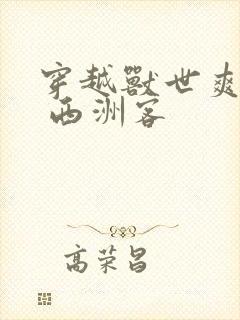 穿越獸世爽
西洲客
高荣昌